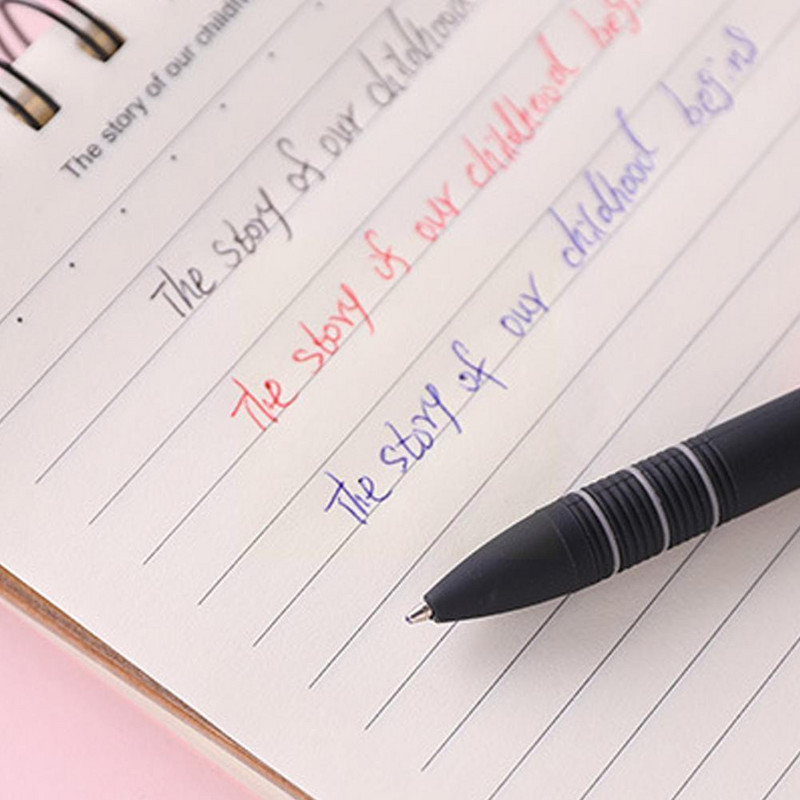 The story of our childh
The story of our childhood
The story of our childhood begi
The story of our childhood begins